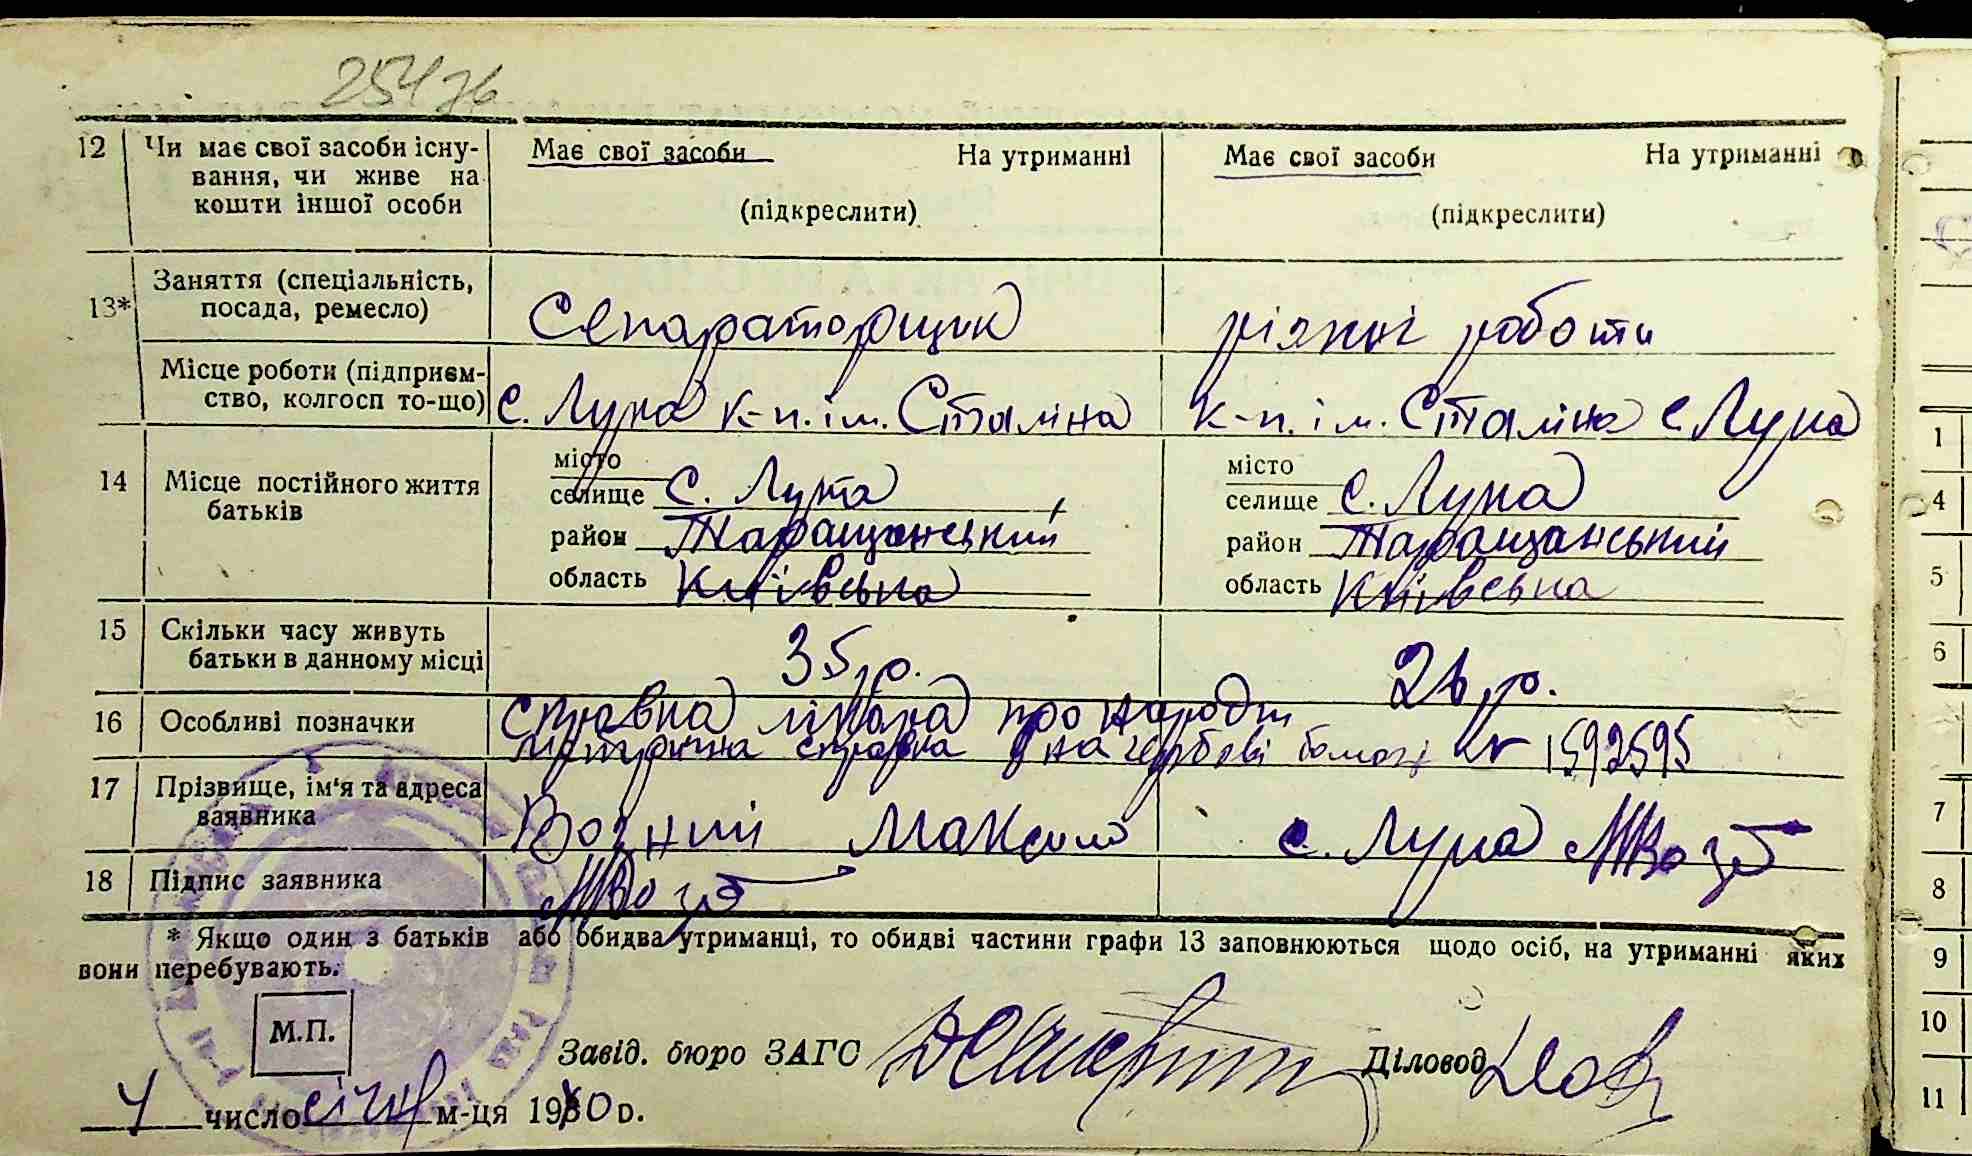 25476
12 Чи має свої засоби існу- Має свої засоби На утриманні Має свої засоби На утриманні
вання, чи живе на
кошти іншої особи (підкреслити) (підкреслити)
13* Заняття (спеціальність,
посада, ремесло) Сепараторщик різні роботи
Місце роботи (підприєм-
ство, колгосп то-що) с. Лука к-п. ім. Сталіна к-п. ім. Сталіна с Лука
місто місто
14 Місце постійного життя селище с. Лука селище с. Лука
батьків район Таращанський район Таращанський
область Київська область Київська
15 Скільки часу живуть
батьки в данному місці 35 р. 26 р.
16 Особливі позначки Справка лікаря про народж
метрична справка на гербові бомазі № 1592595
17 Прізвище, ім'я та адреса
заявника Возний Максим с. Лука МВоз
18 Підпис заявника МВоз
* Якщо один з батьків або обидва утриманці, то обидві частини графи 13 заповнюються щодо осіб, на утриманні яких
вони перебувають.
М.П.
Завід. бюро ЗАГС Діловод
4 число січня м-ця 1940 р.
1
4
5
6
7
8
9
10
11